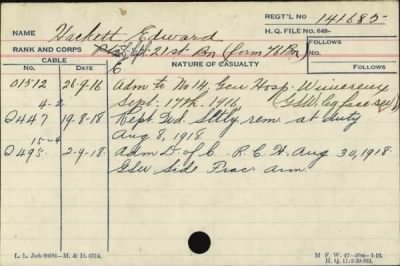 REGT'L NO 141685
NAME Hackett Edward
H. Q. FILE No. 649-
RANK AND CORPS Pte 21st Bn (form 76 Bn)
FOLLOWS No.
CABLE
E
NATURE OF CASUALTY
FOLLOWS
No. DATE
01512 26-9-16 Adm to No 14, Gen Hosp. Wimereux
4-2 Sept. 17th. 1916, (GSW leg face sev)
Q447 19-8-18 Rept Wd. Sltly rem. at duty
15-4 Aug 8, 1918.
Q495 2-9-18 Adm D. of C. R. C. H. Aug 30, 1918
GSW Side Frac arm
L. L. Job 96691—M. & D. 6714.
M. F. W. 42
H. Q.